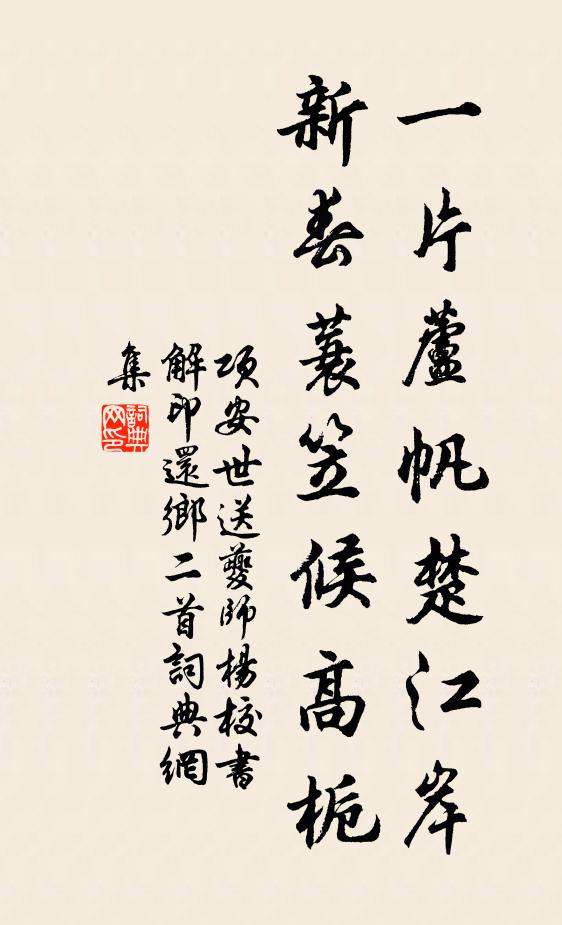 一片蘆帆楚江岸
新春蓑笠候高桅
項安世送夔師楊校書
解印還鄉二首詞典網
集
詞典
网印